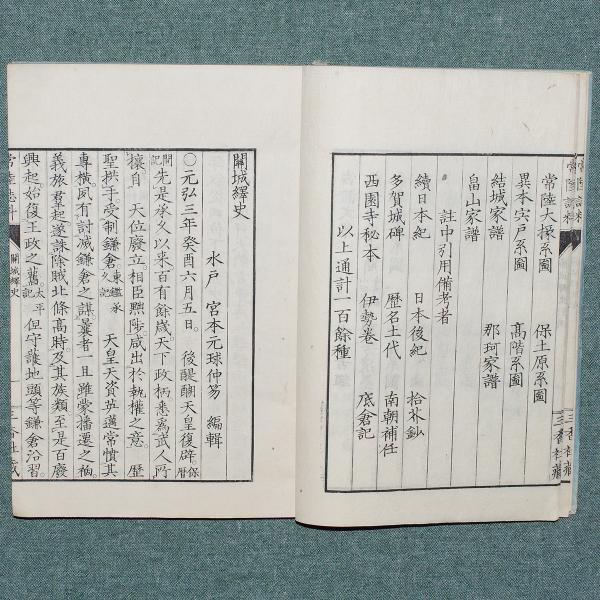 常陸大掾系圖 保土原系圖
異本宍戸系圖 髙階系圖
結城家譜 那珂家譜
畠山家譜
註中引用備考者
續日本紀 日本後紀 拾芥鈔
多賀城碑 歷名土代 南朝補任
西園寺秘本 伊勢巻 底倉記
以上通計一百餘種
關城繹史
水戸 宮本元球仲笏 編輯
〇元弘三年癸酉六月五日。後醍醐天皇復辟保暦
間記先是承久以来百有餘歳。天下政柄悉為武人所
攘。自 天位廢立。相臣黜陟。咸出於執權之意。歷
聖拱手受制鎌倉東鑑承久記 天皇天資英邁常憤其
專橫。夙有討滅鎌倉之謀。曩者一旦雖蒙播遷之禍。
義旅羣起遂誅除賊北條高時及其族類。至是百廢
興起。始復王政之舊。太平記但守護地頭等鎌倉治習。
常陸誌料
關城繹史